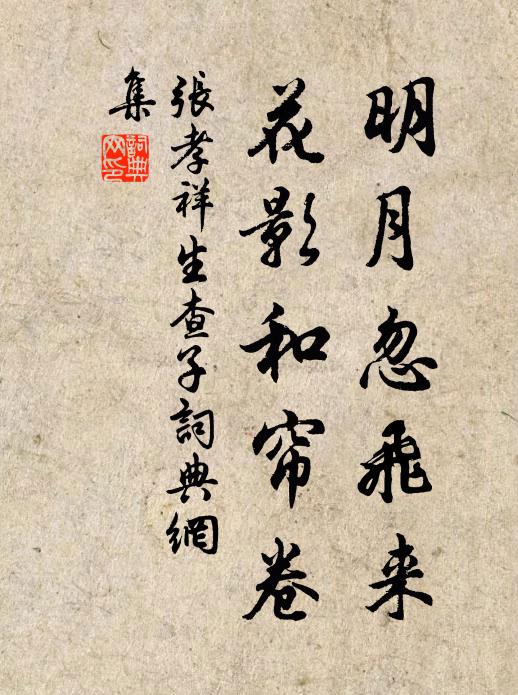 明月忽飛来
花影和帘卷
張孝祥生查子詞典網
集
詞典網印